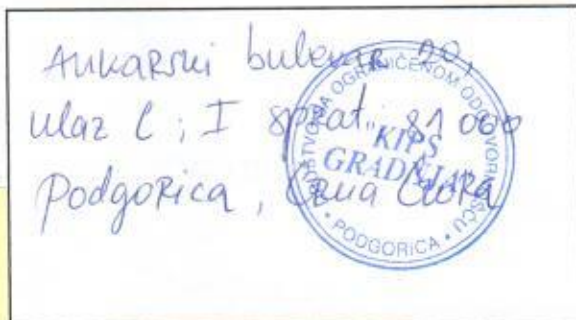 Ankarski bulevar 20,
ulaz C; I sprat; 81000
Podgorica, Crna Gora
DRUŠTVO SA OGRANIČENOM ODGOVORNOŠĆU
"KIPS
GRADNJA"
• PODGORICA •